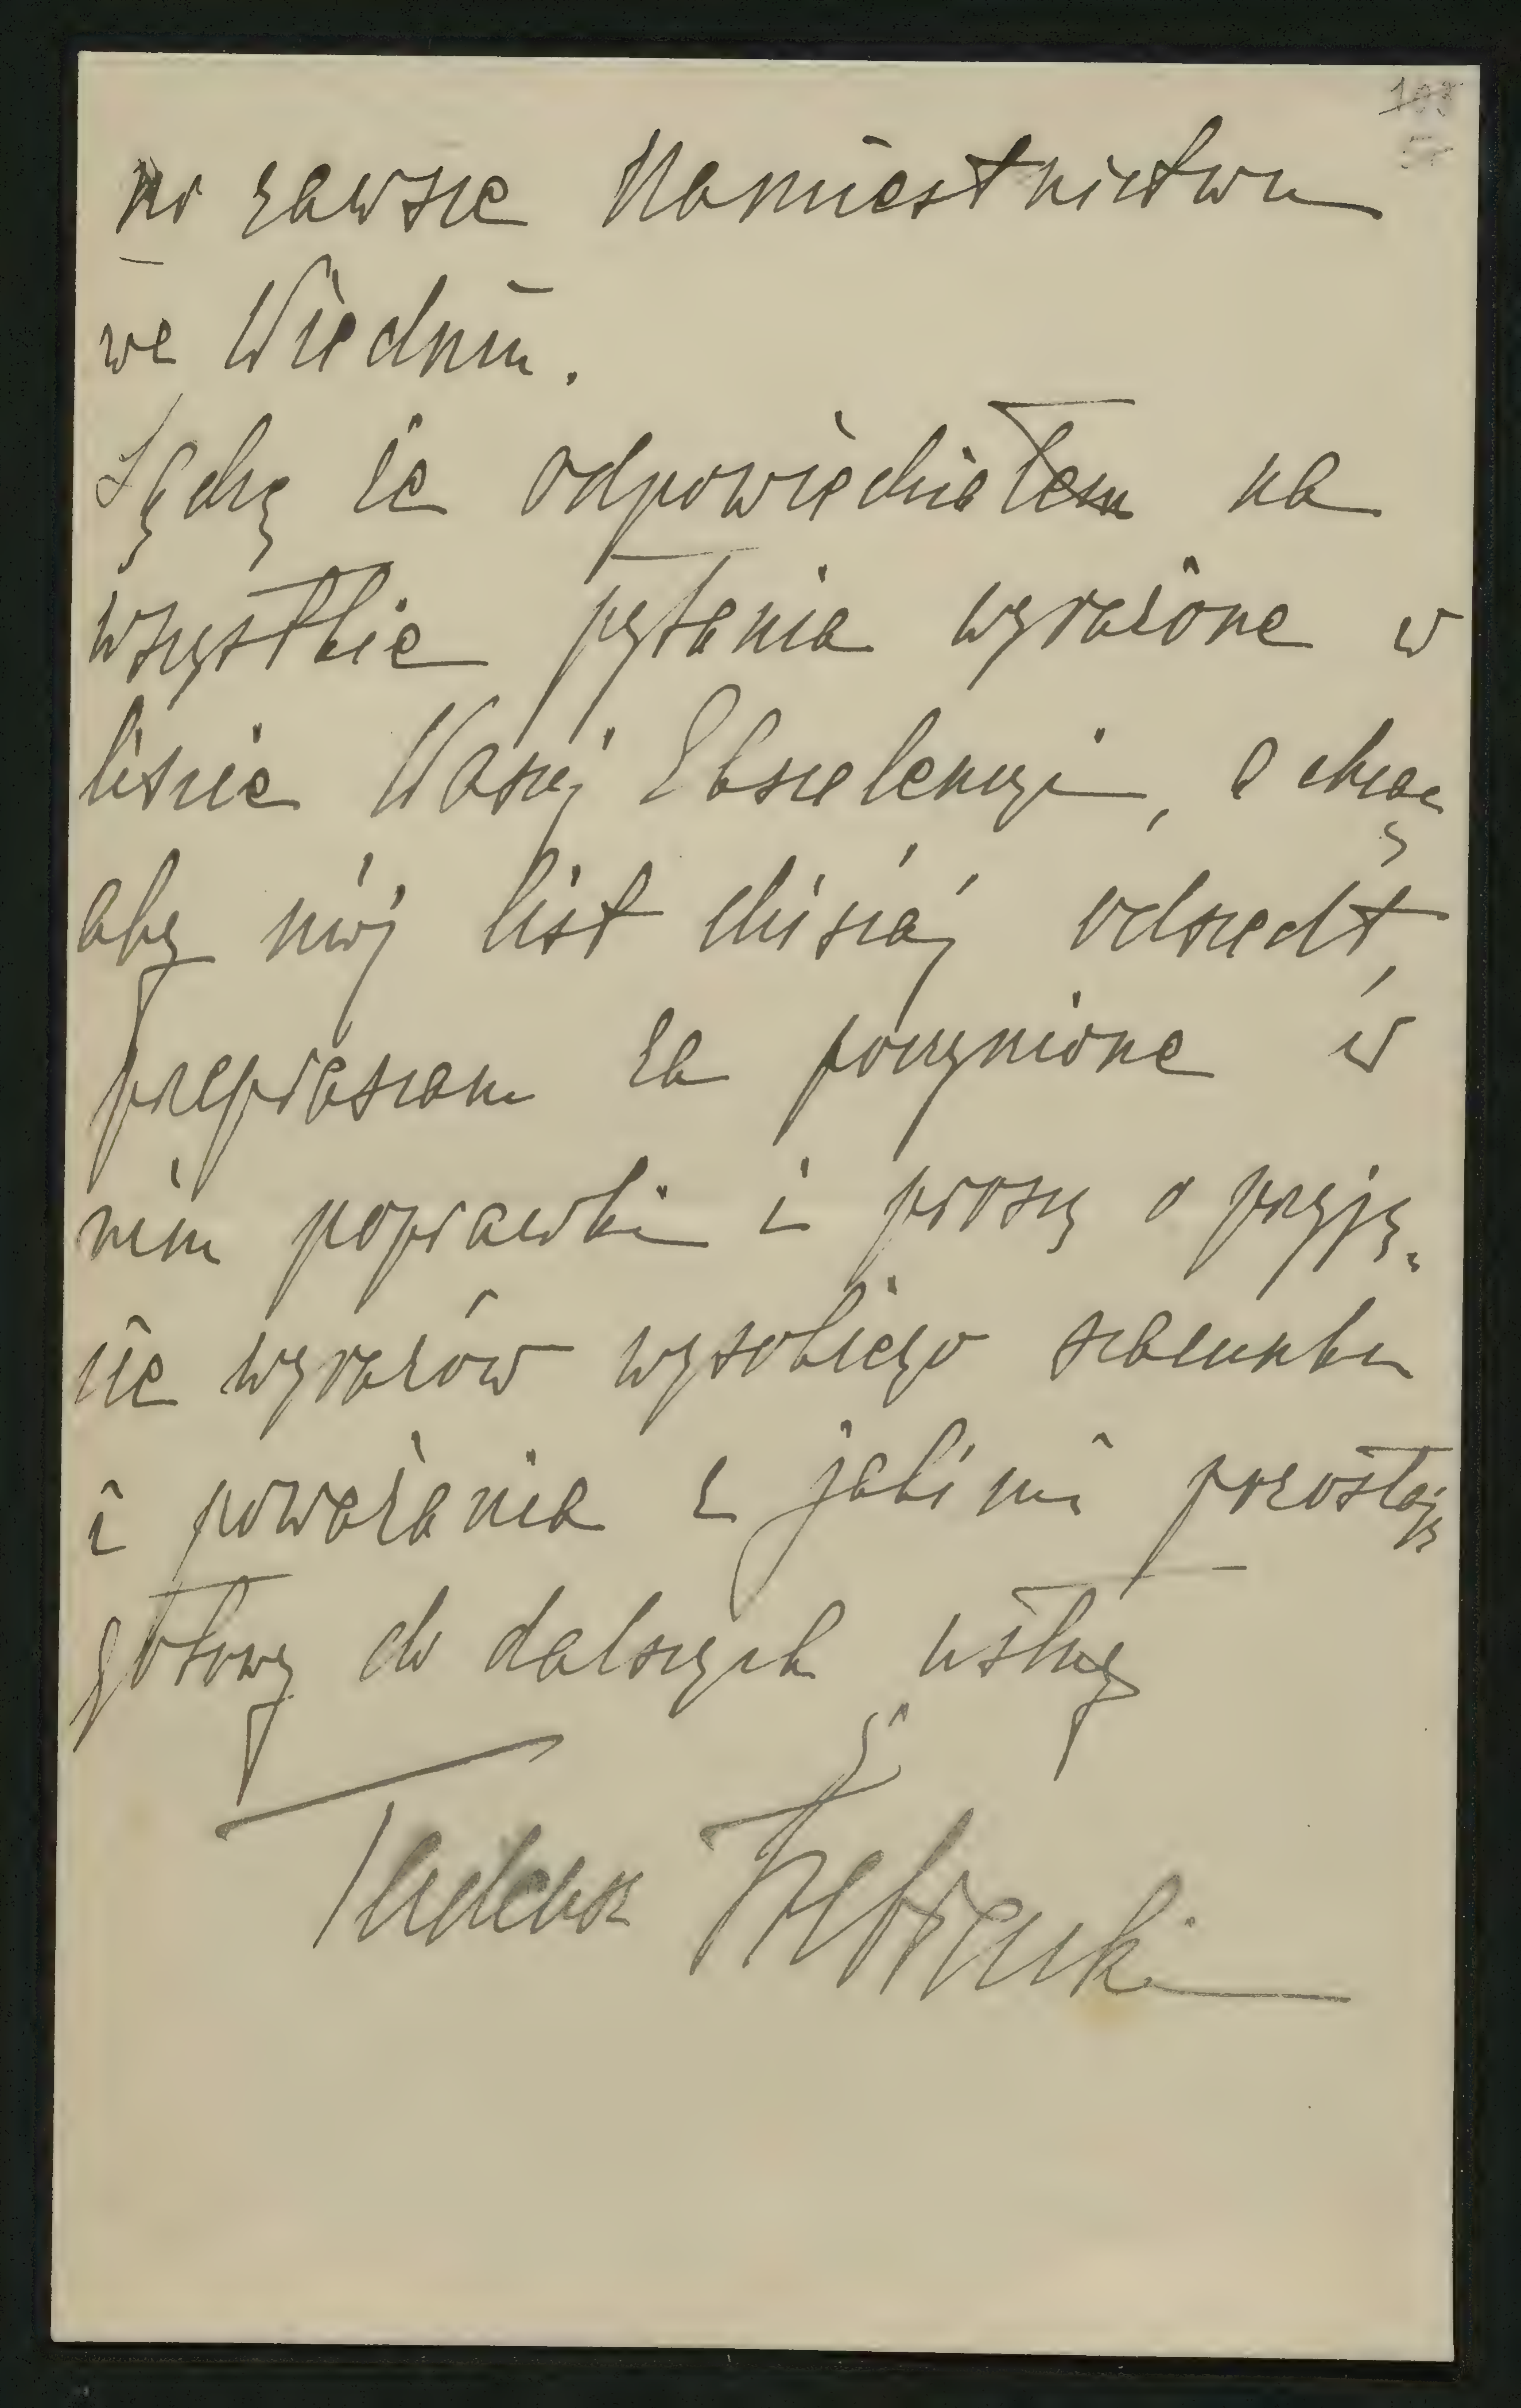 no zawsze Namiestnictwu
we Wiedniu.
Sądzę że odpowiedziałem na
wszystkie pytania wyrażone w
liście Waszej Ekscelencyi, a chcąc
aby mój list dzisiaj odszedł,
przepraszam za poczynione w
nim poprawki i proszę o przyję-
cie wyrazów wysokiego szacunku
i poważania z jakimi pozostaję
gotowy do dalszych usług
Tadeusz